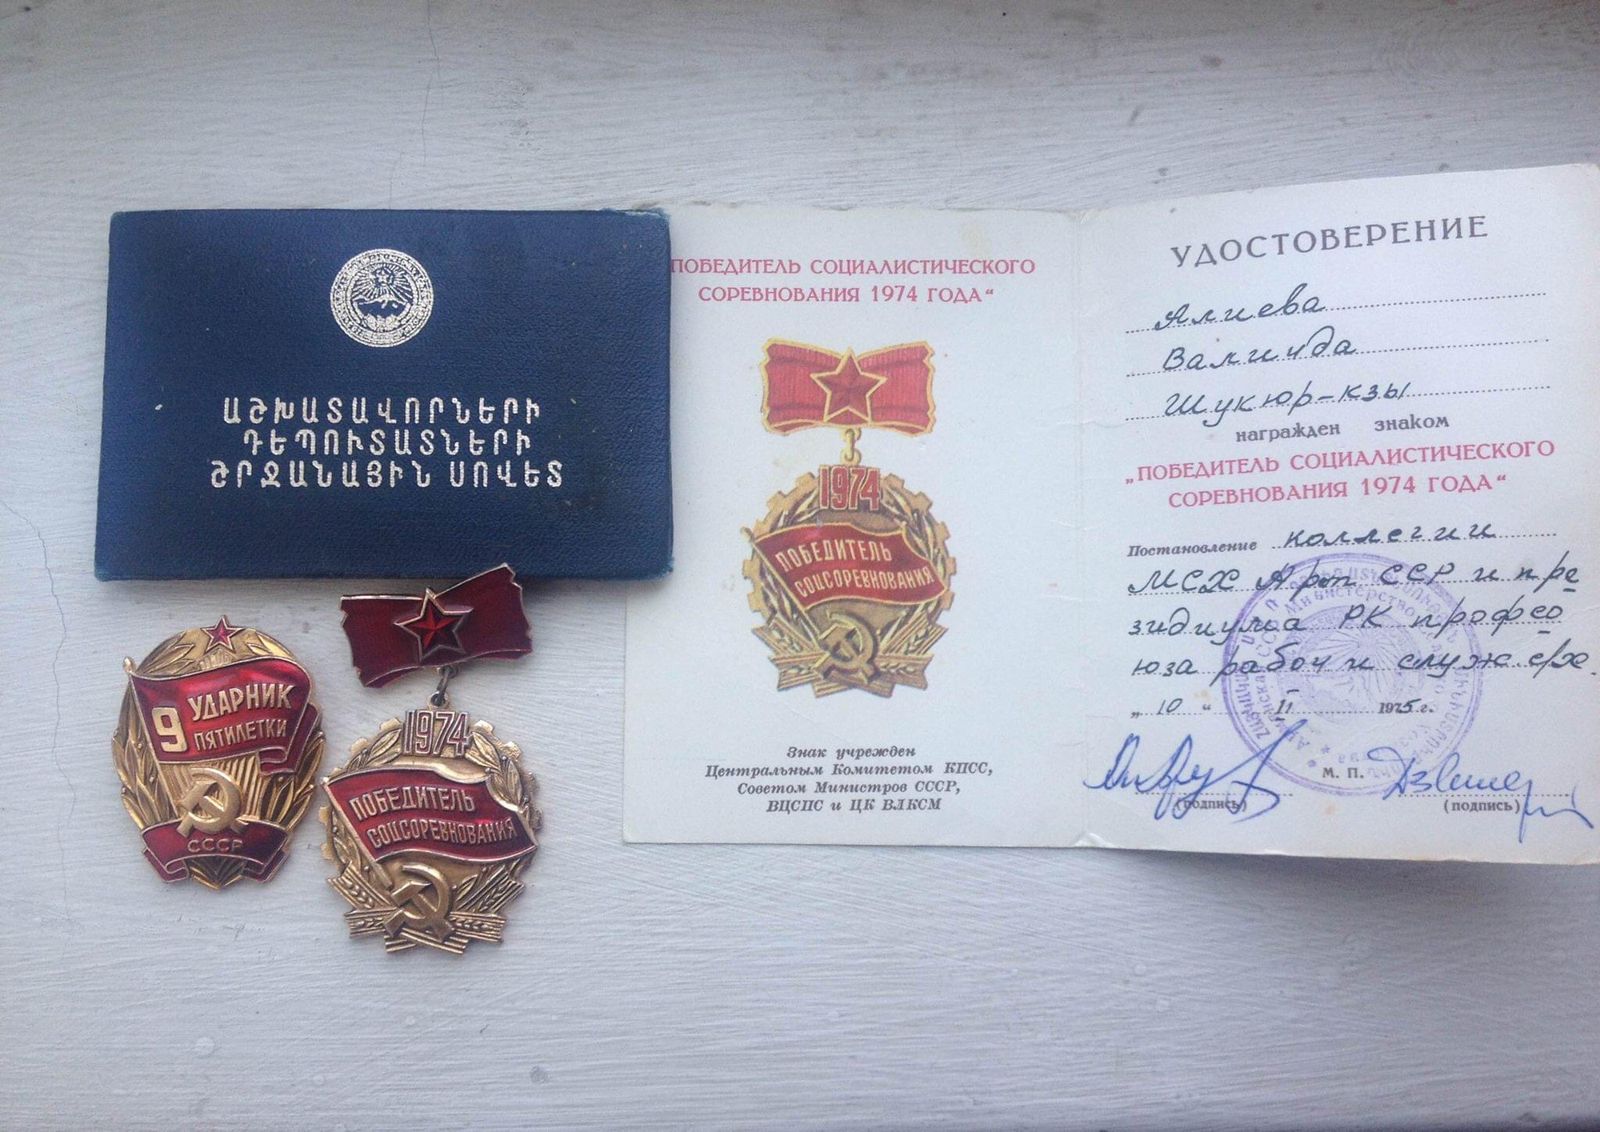 ԱՇԽԱՏԱՎՈՐՆԵՐԻ
ԴԵՊՈՒՏԱՏՆԵՐԻ
ՇՐՋԱՆԱՅԻՆ ՍՈՎԵՏ
9 УДАРНИК
ПЯТИЛЕТКИ
СССР
1974
ПОБЕДИТЕЛЬ
СОЦСОРЕВНОВАНИЯ
ПОБЕДИТЕЛЬ СОЦИАЛИСТИЧЕСКОГО
СОРЕВНОВАНИЯ 1974 ГОДА“
1974
ПОБЕДИТЕЛЬ
СОЦСОРЕВНОВАНИЯ
Знак учрежден
Центральным Комитетом КПСС,
Советом Министров СССР,
ВЦСПС и ЦК ВЛКСМ
УДОСТОВЕРЕНИЕ
Алиева
Валиида
Шукюр-кзы
награжден знаком
„ПОБЕДИТЕЛЬ СОЦИАЛИСТИЧЕСКОГО
СОРЕВНОВАНИЯ 1974 ГОДА“
Постановление коллегии
МСХ Арм ССР и пре
зидиума РК профсо
юза рабоч и служ. с/х.
„10“ II 1975 г.
М. П.
(подпись) (подпись)